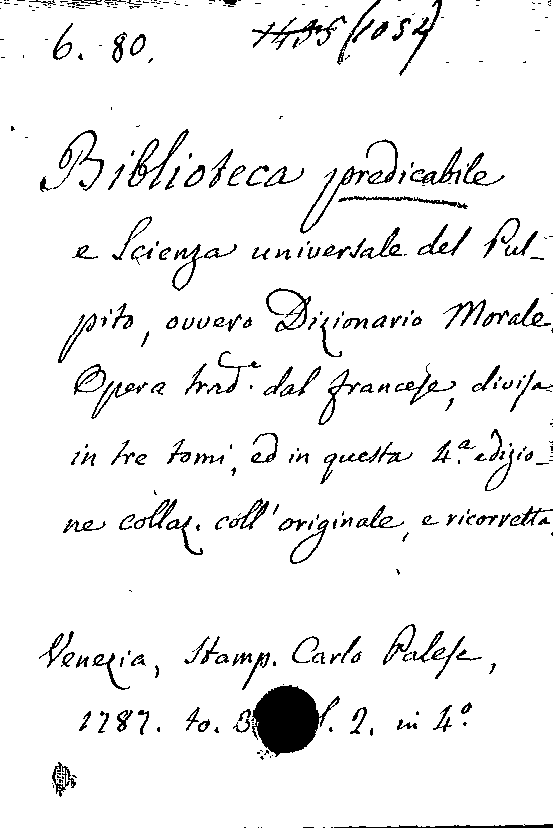 6. 80. 1435 (1054)
Biblioteca predicabile
e Scienza universale del Pul-
pito, ovvero Dizionario Morale.
Opera trad.e dal francese, divisa
in tre tomi, ed in questa 4.a edizio-
ne collaz. coll'originale, e ricorretta.
Venezia, Stamp. Carlo Palese,
1787. to. 3 2. in 4.o